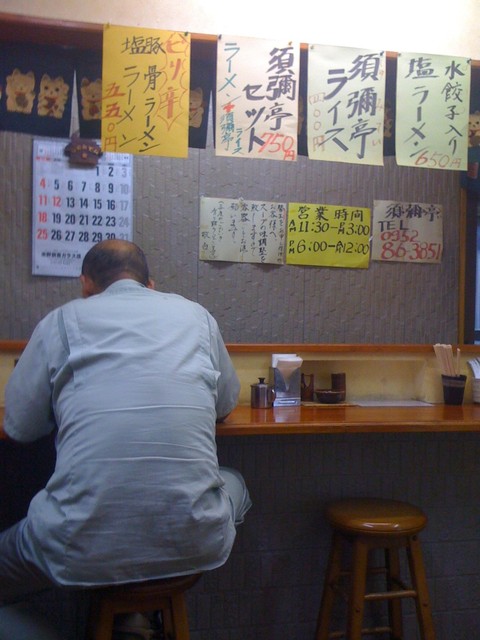 ピリ辛
豚骨ラーメン
塩ラーメン
五五〇円
須彌亭
セット
ラーメン+須彌亭
ライス
750円
須彌亭
ライス
水餃子入り
塩ラーメン
650円
1 2 3
4 5 6 7 8 9 10
11 12 13 14 15 16 17
18 19 20 21 22 23 24
25 26 27 28 29 30
営業時間
AM 11:30-PM3:00
PM 6:00-AM12:00
須彌亭
TEL
0952
86-3851